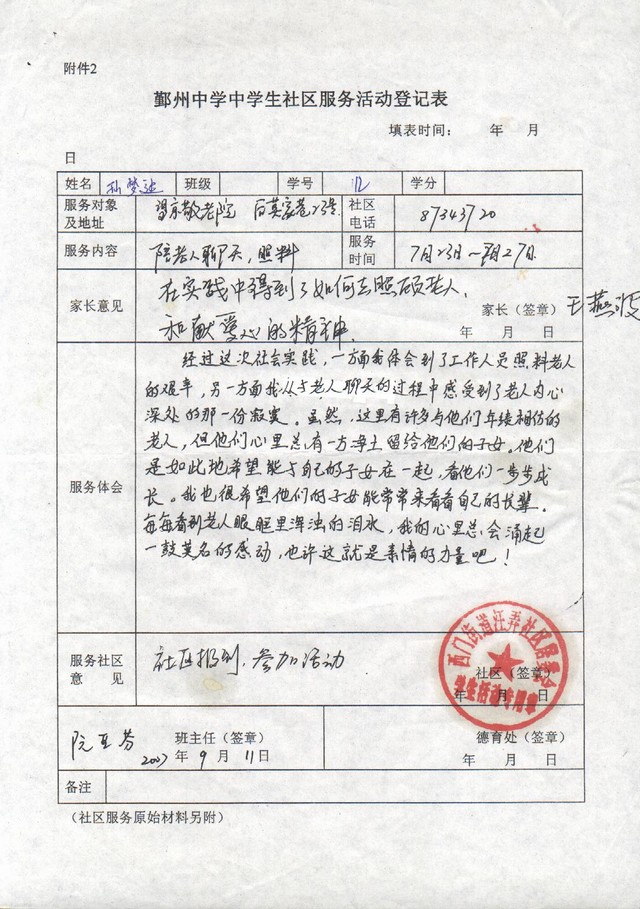 附件2
鄞州中学中学生社区服务活动登记表
填表时间： 年 月
日
姓名 班级 学号 12 学分
服务对象及地址 望京敬老院 白莫家巷23号 社区电话 87343720
服务内容 陪老人聊天，照料 服务时间 7月23日～7月27日
家长意见 在实践中得到了如何去照顾老人，
和献爱心的精神. 家长（签章）王燕波
年 月 日
服务体会
经过这次社会实践，一方面我体会到了工作人员照料老人
的艰辛，另一方面我从与老人聊天的过程中感受到了老人内心
深处的那一份寂寞。虽然，这里有许多与他们年续相仿的
老人，但他们心里总有一方净土留给他们的子女。他们
是如此地希望能与自己的子女在一起，看他们一步步成
长。我也很希望他们的子女能常常来看看自己的长辈。
每每看到老人眼眶里浑浊的泪水，我的心里总会涌起
一鼓莫名的感动，也许这就是亲情的力量吧！
服务社区意见 社区报到，参加活动
社区（签章）
年 月 日
西门街道汪弄社区居委会
学生活动专用章
阮亚芬 班主任（签章） 德育处（签章）
2007年9月11日 年 月 日
备注
（社区服务原始材料另附）